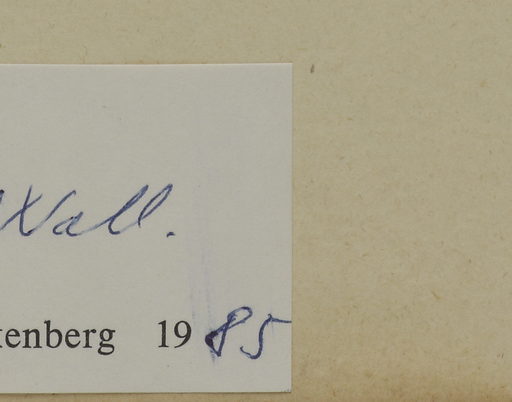 Wall.
tenberg 19 85